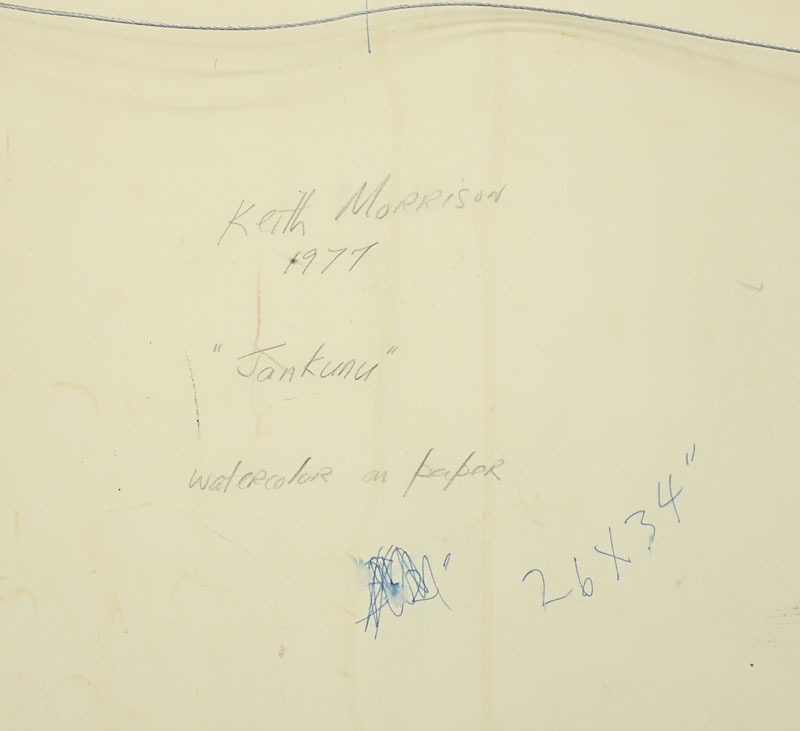 Keith Morrison
1977
"Jankunu"
watercolor on paper
26 X 34"